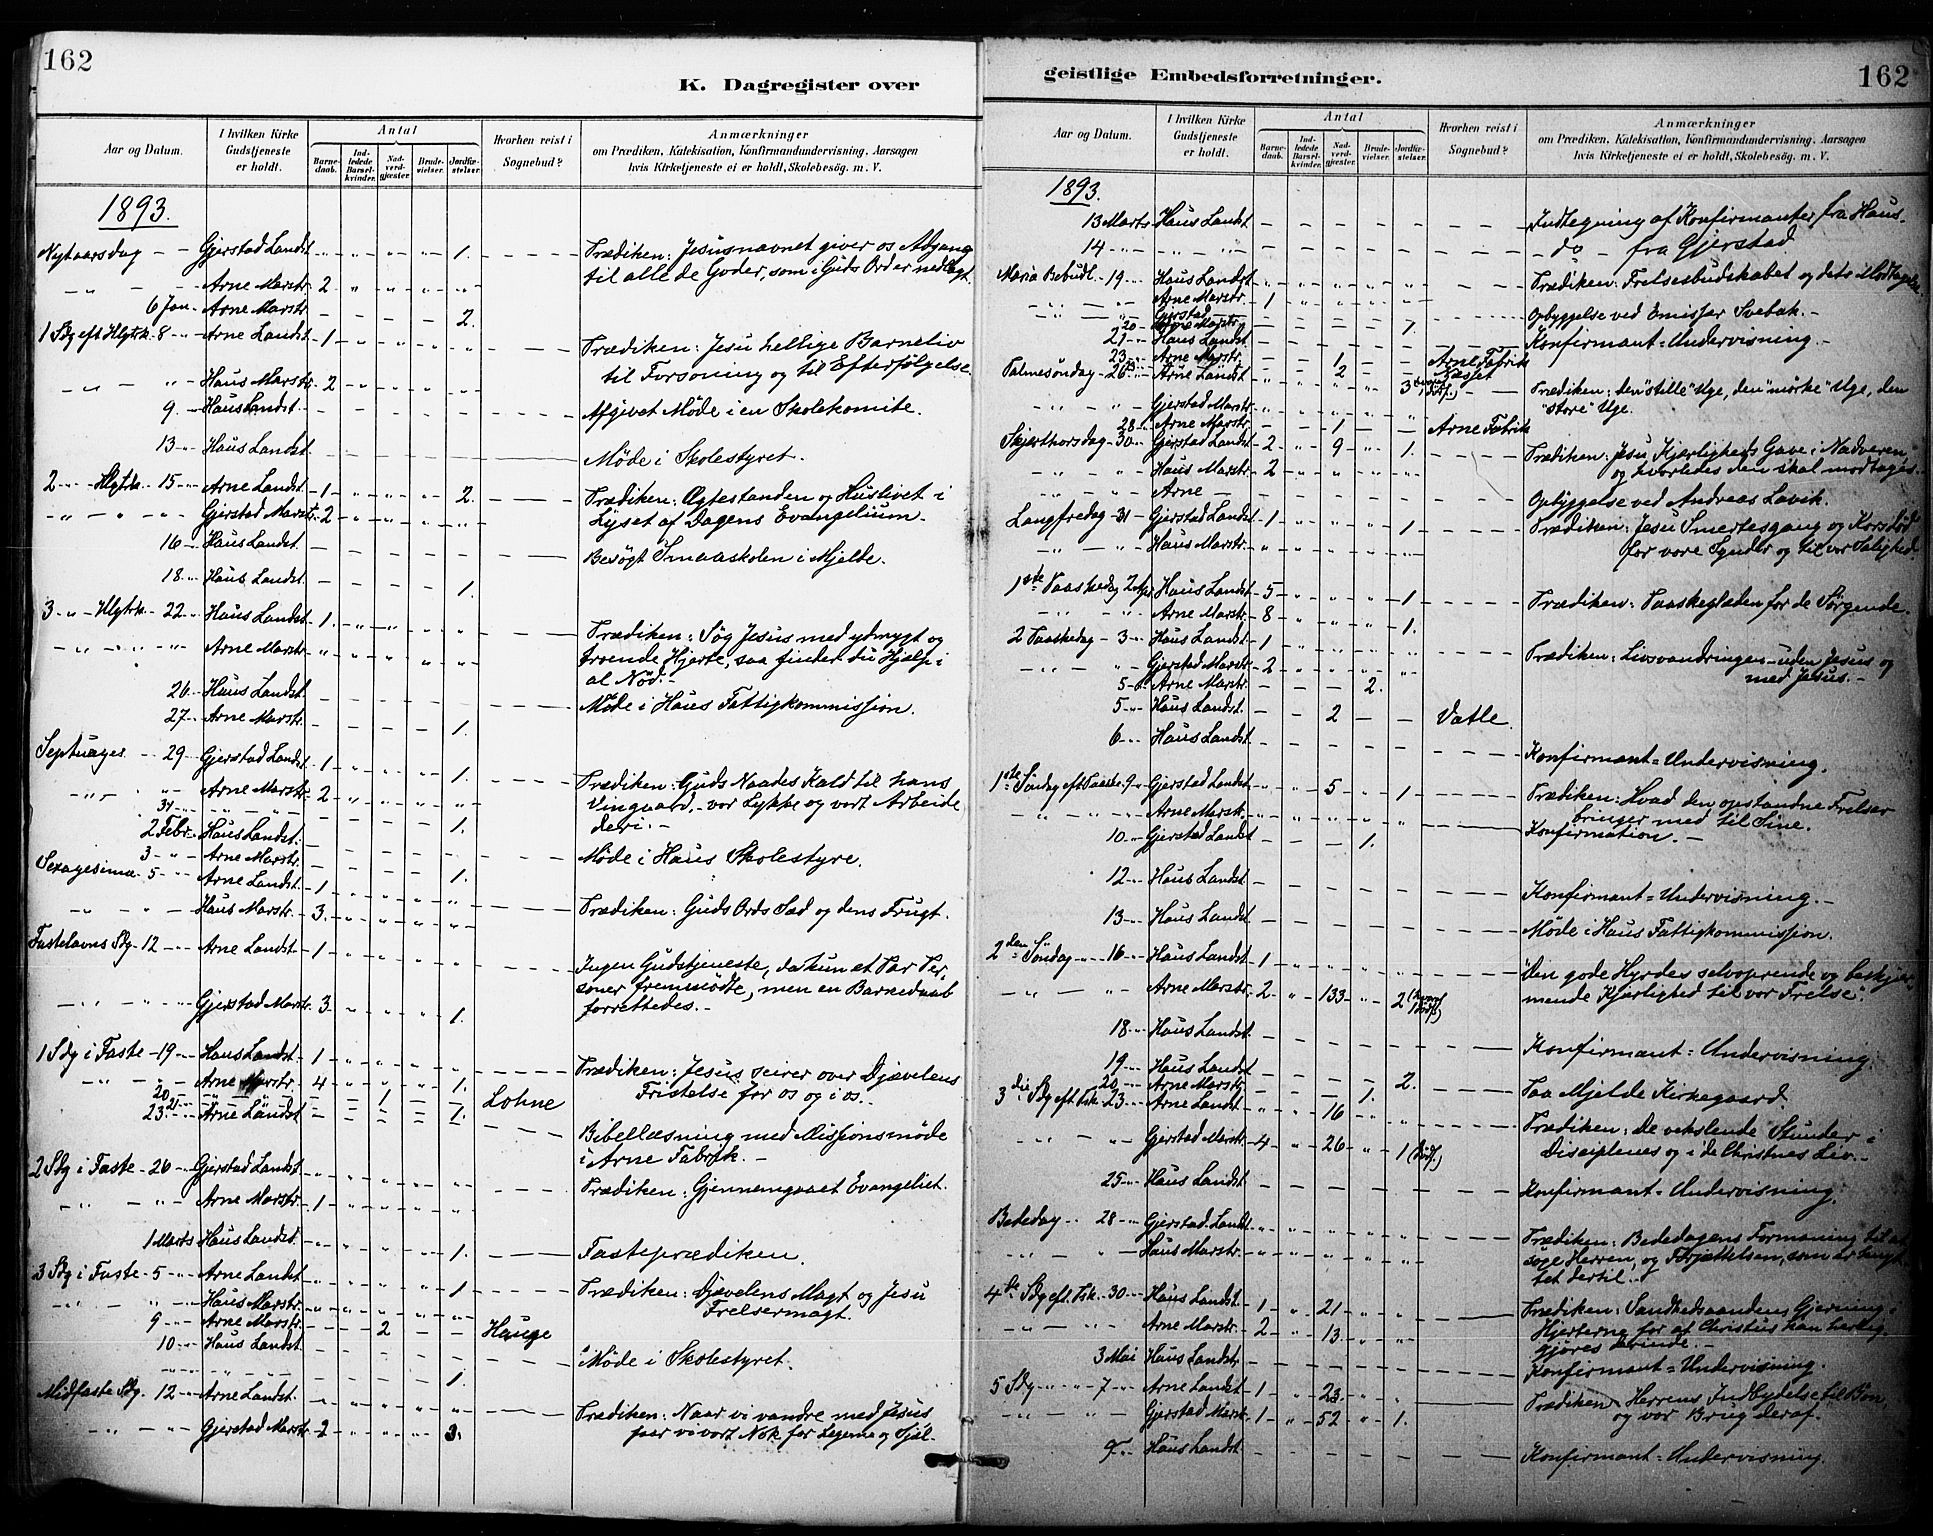 162
K. Dagregister over
Aar og Datum.
I hvilken Kirke Gudstjeneste er holdt.
Antal
Barnedaab.
Indledede Barselkvinder.
Nadverdgjester.
Brudevielser.
Jordfæstelser.
Hvorhen reist i Sognebud?
Anmærkninger
om Prædiken, Katekisation, Konfirmandundervisning, Aarsagen
hvis Kirketjeneste ei er holdt, Skolebesøg, m. V.
1893.
Nytaarsdag Gjerstad Landst. 1. Prædiken: Jesusnavnet giver os Adgang
til alle de Goder, som i Guds Ord er nedlagt.
Arne Marstr. 2
6 Jan Arne Marstr. 2.
1 Sdg eft Hlgtrk. 8 Arne Landst. 1 Prædiken: Jesu hellige Barneliv
til Forsoning og til Efterfølgelse.
Haus Marstr. 2
9 Haus Landst. Afgivet Møde i en Skolekomite.
13 Haus Landst Møde i Skolestyret.
2 Hlgtrk. 15 Arne Landst. 1 2. Prædiken: Ægtestanden og Huslivet i
Lyset af Dagens Evangelium.
Gjerstad Marstr. 2
16 Haus Landst. Besøgt Smaaskolen i Mjelde.
18 Haus Landst. 1.
3 Hlgtrk. 22 Haus Landst. 1. Prædiken: Søg Jesus med ydmygt og
troende Hjerte, saa finder du Hjælp i
al Nød.
Arne Marstr.
26 Haus Landst. Møde i Haus Fattigkommission.
27 Arne Marstr. 1.
Septuages 29 Gjerstad Landst. 1 1. Prædiken: Guds Naades Kald til hans
Vingaard, vor Lykke og vort Arbeide
deri.
Arne Marstr. 2
31 1.
2 Febr. Haus Landst. Møde i Haus Skolestyre.
3 Arne Marstr. 1.
Sexagesima 5 Arne Landst. 1 Prædiken: Guds Ords Sæd og dens Frugt.
Haus Marstr. 3.
Fastelavns Sdg 12 Arne Landst. 1 Ingen Gudstjeneste, da kun et Par Per-
soner fremmødte, men en Barnedaab
forrettedes.
Gjerstad Marstr. 3 1.
1 Sdg i Faste 19 Haus Landst. 1 Prædiken: Jesus seirer over Djævelens
Fristelse for os og i os.
Arne Marstr. 4 1.
20 1 Lohne
21 1.
23 Arne Landst Bibellæsning med Missionsmøde
i Arne Fabrik.
2 Sdg i Faste 26 Gjerstad Landst. Prædiken: Gjennemgaaet Evangeliet.
Arne Marstr. 1
1 Marts Haus Landst. 1. Fasteprædiken.
3 Sdg i Faste 5 Arne Landst 1 Prædiken: Djævelens Magt og Jesu
Frelsermagt.
Haus Marstr.
9 Arne Marstr. 2 Hauge
10 Haus Landst. Møde i Skolestyret.
1.
Midfaste Sdg. 12 Arne Landst. Prædiken: Naar vi vandre med Jesus
faar vi vort Nok for Legeme og Sjæl.
Gjerstad Marstr. 2 3.
geistlige Embedsforretninger.
162
Aar og Datum.
I hvilken Kirke Gudstjeneste er holdt.
Antal
Barnedaab.
Indledede Barselkvinder.
Nadverdgjester.
Brudevielser.
Jordfæstelser.
Hvorhen reist i Sognebud?
Anmærkninger
om Prædiken, Katekisation, Konfirmandundervisning, Aarsagen
hvis Kirketjeneste ei er holdt, Skolebesøg, m. V.
1893.
13 Marts Haus Landst Indtegning af Konfirmanter fra Haus.
14 do fra Gjerstad
Maria Bebudl. 19 Haus Landst. Prædiken: Frelsesbudskabet og dets Modtagelse.
Arne Marstr. 1
Gjerstad Opbyggelse ved Emissær Svebak.
20 Arne Marstr. 1.
21 Haus Landst Konfirmant-Undervisning.
23 Arne Marstr. 1 Arne Fabrik
2 Næsset
Palmesøndag 26 Arne Landst. 3 Prædiken: den "stille" Uge, den "mørke" Uge, den
"store" Uge.
Gjerstad Marstr.
28 Arne Marstr. 1 Arne Fabrik
Skjærthorsdag 30 Gjerstad Landst 2 9 1. Prædiken: Jesu Kjærligheds Gave i Nadveren
og hvorledes den skal modtages.
Haus Marstr. 2
Arne Opbyggelse ved Andreas Lavik
Langfredag 31 Gjerstad Landst 1 1 Prædiken: Jesu Smertesgang og Korsdød
for vore Synder og til vor Salighed.
Haus Marstr.
1ste Paaskedag 2 Apr Haus Landst 5 1 Prædiken: Paaskeglæden for de Sørgende.
Arne Marstr. 8 1.
2 Paaskedag 3 Haus Landst. 1 Prædiken: Livsvandringen uden Jesus og
med Jesus.
Gjerstad Marstr. 2
5 Arne Marstr. 2.
5 Haus Landst. 2 Vatle
6 Haus Landst. Konfirmant-Undervisning.
1ste Søndag eft Paaske 9 Gjerstad Landst 5 1 Prædiken: Hvad den opstandne Frelser
bringer med til Sine.
Arne Marstr.
10 Gjerstad Landst 1. Konfirmation.
12 Haus Landst Konfirmant-Undervisning.
13 Haus Landst Møde i Haus Fattigkommission.
2den Søndag 16 Haus Landst. 1 "Den gode Hyrdes selvoprende og beskjær-
mende Kjærlighed til vor Frelse".
Arne Marstr. 2 133 2
18 Haus Landst. Konfirmant-Undervisning.
19 Haus Landst 2. Paa Mjelde Kirkegaard.
20 Arne Marstr. 1.
3die Sdg eft Psk. 23 Arne Landst 16 Prædiken: De vekslende Stunder i
Disciplenes og i de Christnes Liv.
Gjerstad Marstr 4 26 1
25 Haus Landst. Konfirmant-Undervisning.
Bededag 28 Gjerstad Landst Prædiken: Bededagens Formaning til at
søge Herren, og Forjættelsen, som er knyt-
tet dertil.
Haus Marstr.
4de Sdg eft. Psk. 30 Haus Landst. 1 21 Prædiken: Sandhedsaandens Gjerning i
Hjerterne for at Christus kan herlig-
gjøres derinde.
Arne Marstr. 2 13
3 Mai Haus Landst. Konfirmant-Undervisning.
5 Sdg 7 Arne Landst. 1 23 Prædiken Herrens Indbydelse til Bøn
og vor Brug deraf.
Gjerstad Marstr. 1 52 1.
9 Haus Landst. Konfirmant-Undervisning.